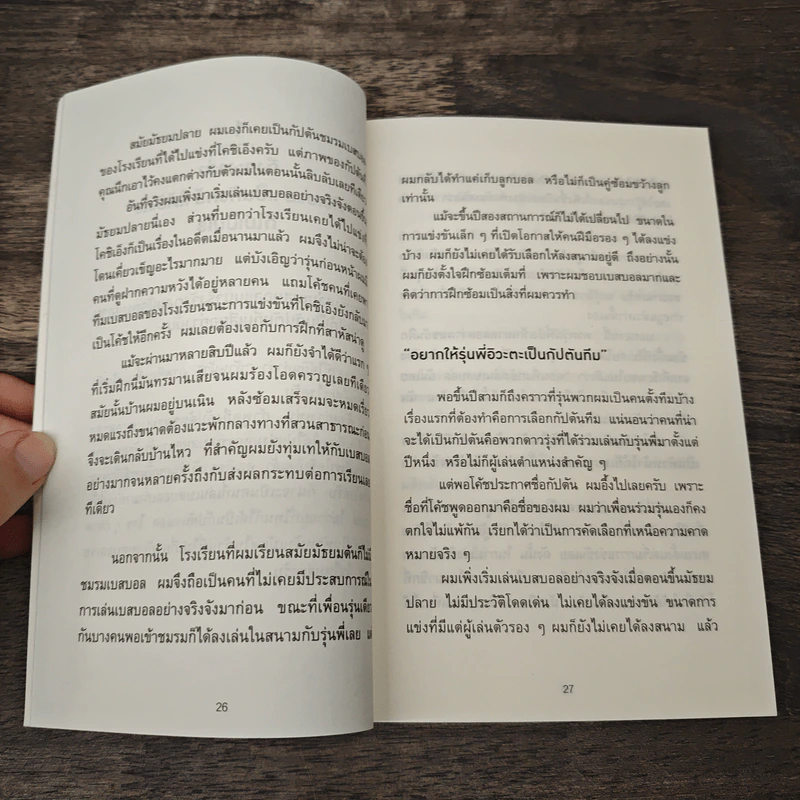 สมัยมัธยมปลาย ผมเองก็เคยเป็นกัปตันชมรมเบสบอล
ของโรงเรียนที่ได้ไปแข่งที่โคชิเอ็งครับ แต่ภาพของกัปตันที่
คุณนึกเอาไว้คงแตกต่างกับตัวผมในตอนนั้นลิบลับเลยทีเดียว
อันที่จริงผมเพิ่งมาเริ่มเล่นเบสบอลอย่างจริงจังตอนขึ้น
มัธยมปลายนี่เอง ส่วนที่บอกว่าโรงเรียนเคยได้ไปแข่งที่
โคชิเอ็งก็เป็นเรื่องในอดีตเมื่อนานมาแล้ว ผมจึงไม่น่าจะต้อง
โดนเคี่ยวเข็ญอะไรมากมาย แต่บังเอิญว่ารุ่นก่อนหน้าผมมี
คนที่ดูฝากความหวังได้อยู่หลายคน แถมโค้ชคนที่เคยพา
ทีมเบสบอลของโรงเรียนชนะการแข่งขันที่โคชิเอ็งยังกลับมา
เป็นโค้ชให้อีกครั้ง ผมเลยต้องเจอกับการฝึกที่สาหัสน่าดู
แม้จะผ่านมาหลายสิบปีแล้ว ผมก็ยังจำได้ดีว่าแรก ๆ
ที่เริ่มฝึกนี่มันทรมานเสียจนผมร้องโอดครวญเลยทีเดียว
สมัยนั้นบ้านผมอยู่บนเนิน หลังซ้อมเสร็จผมจะหมดเรี่ยว
หมดแรงถึงขนาดต้องแวะพักกลางทางที่สวนสาธารณะก่อน
จึงจะเดินกลับบ้านไหว ที่สำคัญผมยังทุ่มเทให้กับเบสบอล
อย่างมากจนหลายครั้งถึงกับส่งผลกระทบต่อการเรียนเลย
ทีเดียว
นอกจากนั้น โรงเรียนที่ผมเรียนสมัยมัธยมต้นก็ไม่มี
ชมรมเบสบอล ผมจึงถือเป็นคนที่ไม่เคยมีประสบการณ์ใน
การเล่นเบสบอลอย่างจริงจังมาก่อน ขณะที่เพื่อนรุ่นเดียว
กันบางคนพอเข้าชมรมก็ได้ลงเล่นในสนามกับรุ่นพี่เลย แต่
26
ผมกลับได้ทำแค่เก็บลูกบอล หรือไม่ก็เป็นคู่ซ้อมขว้างลูก
เท่านั้น
แม้จะขึ้นปีสองสถานการณ์ก็ไม่ได้เปลี่ยนไป ขนาดใน
การแข่งขันเล็ก ๆ ที่เปิดโอกาสให้คนฝีมือรอง ๆ ได้ลงแข่ง
บ้าง ผมก็ยังไม่เคยได้รับเลือกให้ลงสนามอยู่ดี ถึงอย่างนั้น
ผมก็ยังตั้งใจฝึกซ้อมเต็มที่ เพราะผมชอบเบสบอลมากและ
คิดว่าการฝึกซ้อมเป็นสิ่งที่ผมควรทำ
“อยากให้รุ่นพี่อิวะตะเป็นกัปตันทีม”
พอขึ้นปีสามก็ถึงคราวที่รุ่นพวกผมเป็นคนตั้งทีมบ้าง
เรื่องแรกที่ต้องทำคือการเลือกกัปตันทีม แน่นอนว่าคนที่น่า
จะได้เป็นกัปตันคือพวกดาวรุ่งที่ได้ร่วมเล่นกับรุ่นพี่มาตั้งแต่
ปีหนึ่ง หรือไม่ก็ผู้เล่นตำแหน่งสำคัญ ๆ
แต่พอโค้ชประกาศชื่อกัปตัน ผมอึ้งไปเลยครับ เพราะ
ชื่อที่โค้ชพูดออกมาคือชื่อของผม ผมว่าเพื่อนร่วมรุ่นเองก็คง
ตกใจไม่แพ้กัน เรียกได้ว่าเป็นการคัดเลือกที่เหนือความคาด
หมายจริง ๆ
ผมเพิ่งเริ่มเล่นเบสบอลอย่างจริงจังเมื่อตอนขึ้นมัธยม
ปลาย ไม่มีประวัติโดดเด่น ไม่เคยได้ลงแข่งขัน ขนาดการ
แข่งที่มีแต่ผู้เล่นตัวรอง ๆ ผมก็ยังไม่เคยได้ลงสนาม แล้ว
27